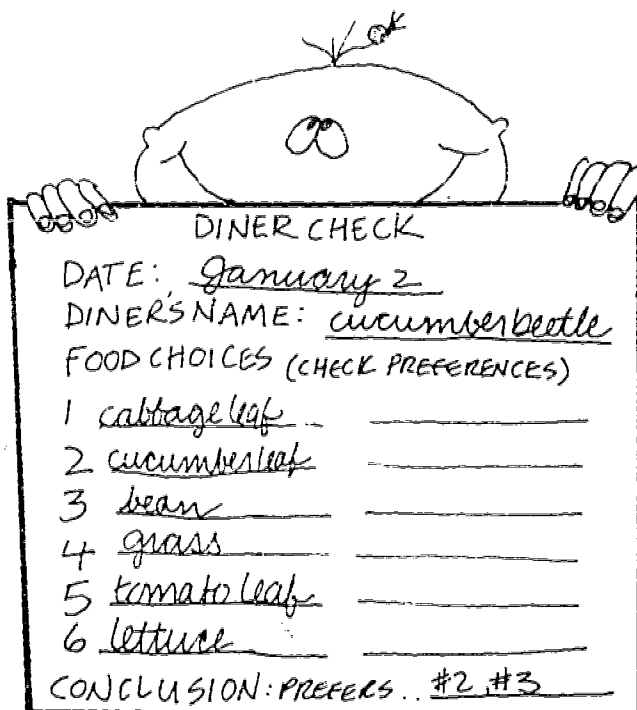 DINER CHECK
DATE: January 2
DINER'S NAME: cucumber beetle
FOOD CHOICES (CHECK PREFERENCES)
1 cabbage leaf
2 cucumber leaf
3 bean
4 grass
5 tomato leaf
6 lettuce
CONCLUSION: PREFERS.. #2, #3